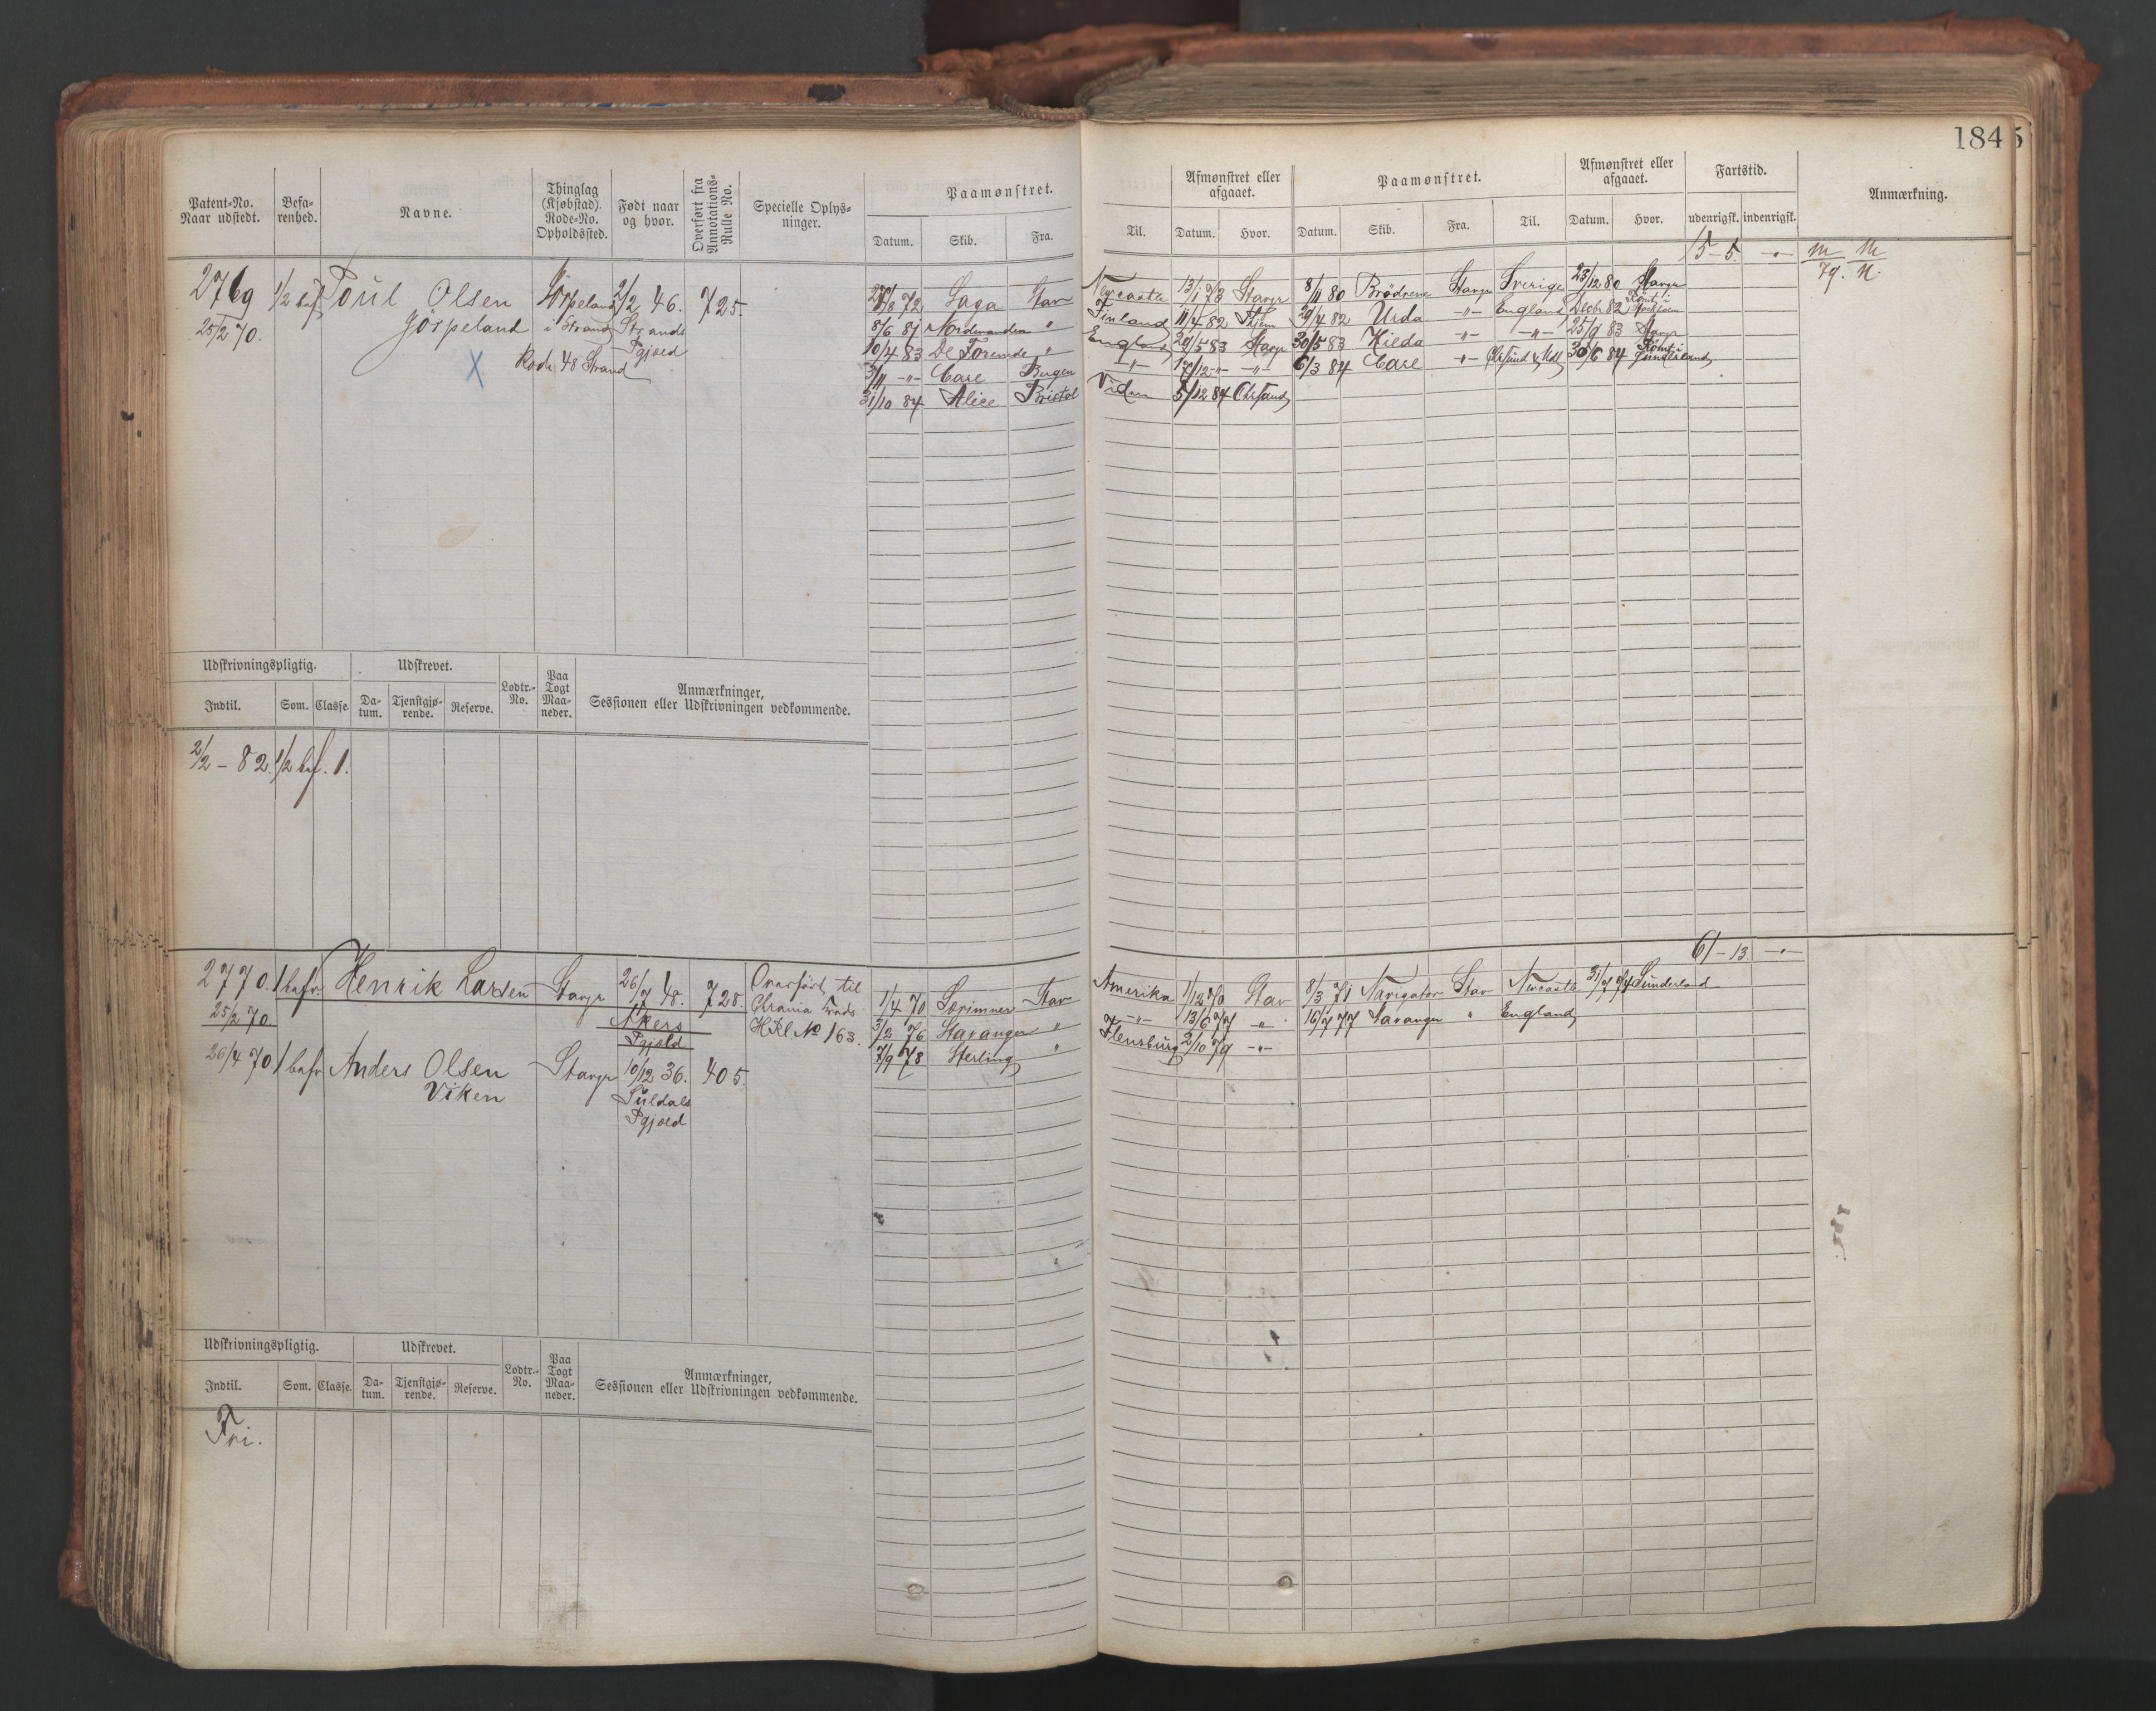 184
5
Patent-No. Naar udstedt.
Befa-renhed.
Navne.
Thinglag (Kjøbstad). Rode-No. Opholdssted.
Født naar og hvor.
Overført fra Annotations-Rulle No.
Specielle Oplys-ninger.
Paamønstret.
Datum. Skib. Fra.
Til.
Afmønstret eller afgaaet.
Datum. Hvor.
Paamønstret.
Datum. Skib. Fra. Til.
Afmønstret eller afgaaet.
Datum. Hvor.
Fartstid.
udenrigsk. indenrigsk.
Anmærkning.
15-5 -"-
2769 1/2 bef. Poul Olsen 2/2 46. 725.
25/2 70. Jörpeland i Strand Strands Pgjæld
X Rode 48 Strand
72 Saga Stav Newcastle 13/1 73 Stavgr 8/11 80 Brödrene Stavgr Sverige 23/12 80 Stavgr
8/6 81 Nordmanden " Finland 11/4 82 Hjem 29/4 82 Urda -"- England Decbr 82
10/4 83 De Foreende " England 29/5 83 Stavgr 30/5 83 Hilda -"- -"- 25/9 83 Stavgr
3/11 -"- Care Bergen -"- 17/12 -"- -"- 6/3 84 Care -"- 30/6 84 Römt i Sunderland
31/10 84 Alice Bristol Viden 5/12 84 Chrsand
m m
79. N.
Udskrivningspligtig. Udskrevet. Lodtr.-No. Paa Togt Maa-neder. Anmærkninger, Sessionen eller Udskrivningen vedkommende.
Indtil. Som. Classe. Da-tum. Tjenstgjø-rende. Reserve.
2/2 - 82. 1/2 bef. 1.
61-13 -"-
2770. 1 befr. Henrik Larsen Stavgr 26/7 48. 728. Overført til
25/2 70. Akers Pgjæld Chrania Frads HRl No 163.
26/4 70 1 befr Anders Olsen Stavgr 10/12 36. 405.
Viken Suldals
Pgjæld
1/4 70 Sorimner Stav Amerika 1/12 70 Stav 8/3 71 Navigator Stav Newcastle 31/7 74 Sunderland
3/2 76 Stavanger " -"- 13/6 77 -"- 16/7 77 Stavanger " England
7/9 78 Sterling " Flensburg 2/10 79 -"-
Udskrivningspligtig. Udskrevet. Lodtr.-No. Paa Togt Maa-neder. Anmærkninger, Sessionen eller Udskrivningen vedkommende.
Indtil. Som. Classe. Da-tum. Tjenstgjø-rende. Reserve.
Fri.